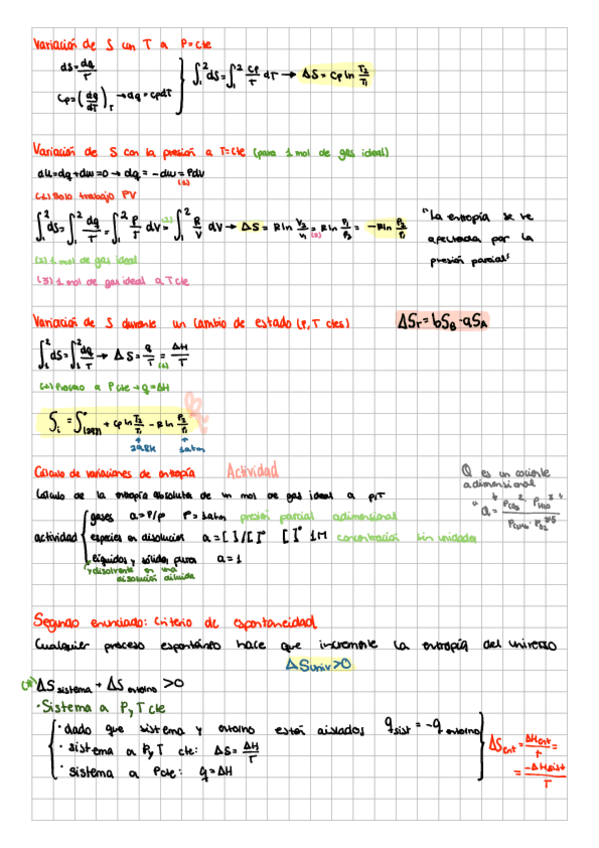 Variación de S con T a P=cte
dS=dq/T
Cp=(dq/dT)_T → dq=cpdT } ∫₁² dS=∫₁² Cp/T dT → ΔS=Cp ln T₂/T₁
Variación de S con la presión a T=cte (para 1 mol de gas ideal)
dU=dq+dw=0 → dq=-dw=PdV
(1)
(1) Solo trabajo PV
∫₁² dS=∫₁² dq/T=∫₁² P/T dV =(2) ∫₁² R/V dV → ΔS=R ln V₂/V₁ =(3) R ln P₁/P₂ = -R ln P₂/P₁
"La entropía se ve
afectada por la
presión parcial"
(2) 1 mol de gas ideal
(3) 1 mol de gas ideal a T cte
Variación de S durante un cambio de estado (P,T ctes) ΔSr=bS_B-aS_A
∫₁² dS=∫₁² dq/T → ΔS=q/T =(1) ΔH/T
(1) Proceso a P cte → q=ΔH
Si=S°i,298K + Cp ln T₂/T₁ - R ln P₂/P₁
↑ 298K ↑ 1atm
Cálculo de variaciones de entropía Actividad
Q es un cociente
adimensional
Cálculo de la entropía absoluta de un mol de gas ideal a P,T
actividad { gases a=P/P° P°=1atm presión parcial adimensional
especies en disolución a=[ ]/[ ]° [ ]° 1M concentración sin unidades
líquidos y sólidos puros a=1
disolvente en una
disolución diluida
Segundo enunciado: Criterio de espontaneidad
Cualquier proceso espontáneo hace que incremente la entropía del universo
ΔSuniv>0
ΔS sistema + ΔS entorno >0
·Sistema a P,T cte
· dado que sistema y entorno están aislados q sist = -q entorno
· sistema a P,T cte: ΔS=ΔH/T
· sistema a P cte: q=ΔH
} ΔSent=ΔHent/T=
=-ΔHsist/T